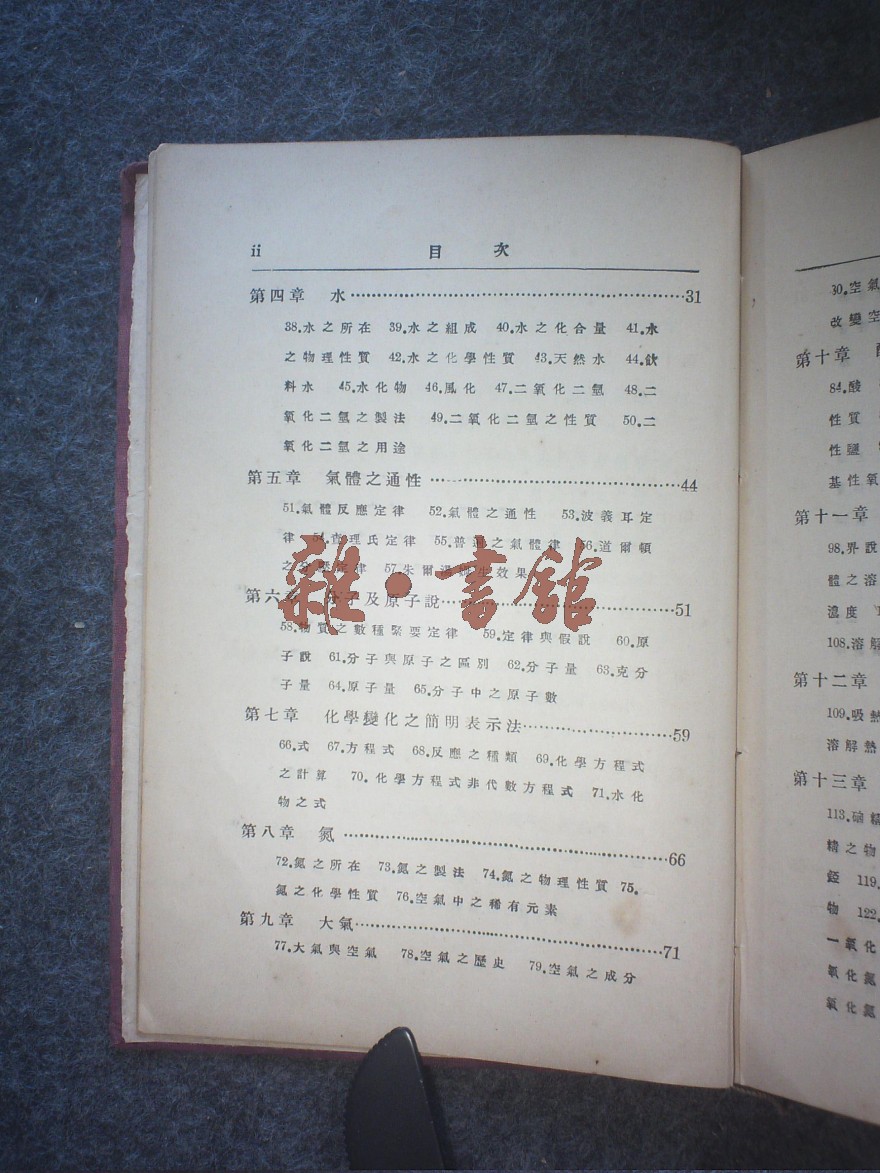 ii 目 次
第四章 水……31
38.水之所在 39.水之組成 40.水之化合量 41.水
之物理性質 42.水之化學性質 43.天然水 44.飲
料水 45.水化物 46.風化 47.二氧化二氫 48.二
氧化二氫之製法 49.二氧化二氫之性質 50.二
氧化二氫之用途
第五章 氣體之通性……44
51.氣體反應定律 52.氣體之通性 53.波義耳定
律 54.查理氏定律 55.普通之氣體律 56.道爾頓
之分壓定律 57.朱爾湯姆生效果
第六章 分子及原子說……51
58.物質之數種緊要定律 59.定律與假說 60.原
子說 61.分子與原子之區別 62.分子量 63.克分
子量 64.原子量 65.分子中之原子數
第七章 化學變化之簡明表示法……59
66.式 67.方程式 68.反應之種類 69.化學方程式
之計算 70.化學方程式非代數方程式 71.水化
物之式
第八章 氮……66
72.氮之所在 73.氮之製法 74.氮之物理性質 75.
氮之化學性質 76.空氣中之稀有元素
第九章 大氣……71
77.大氣與空氣 78.空氣之歷史 79.空氣之成分
雜·書館
30.空氣
改變空
第十章
84.酸
性質
性鹽
基性氧
第十一章
98.界說
體之溶
濃度
108.溶解
第十二章
109.吸熱
溶解熱
第十三章
113.硝精
精之物
銨 119.
物 122.
一氧化
氧化氮
氧化氮